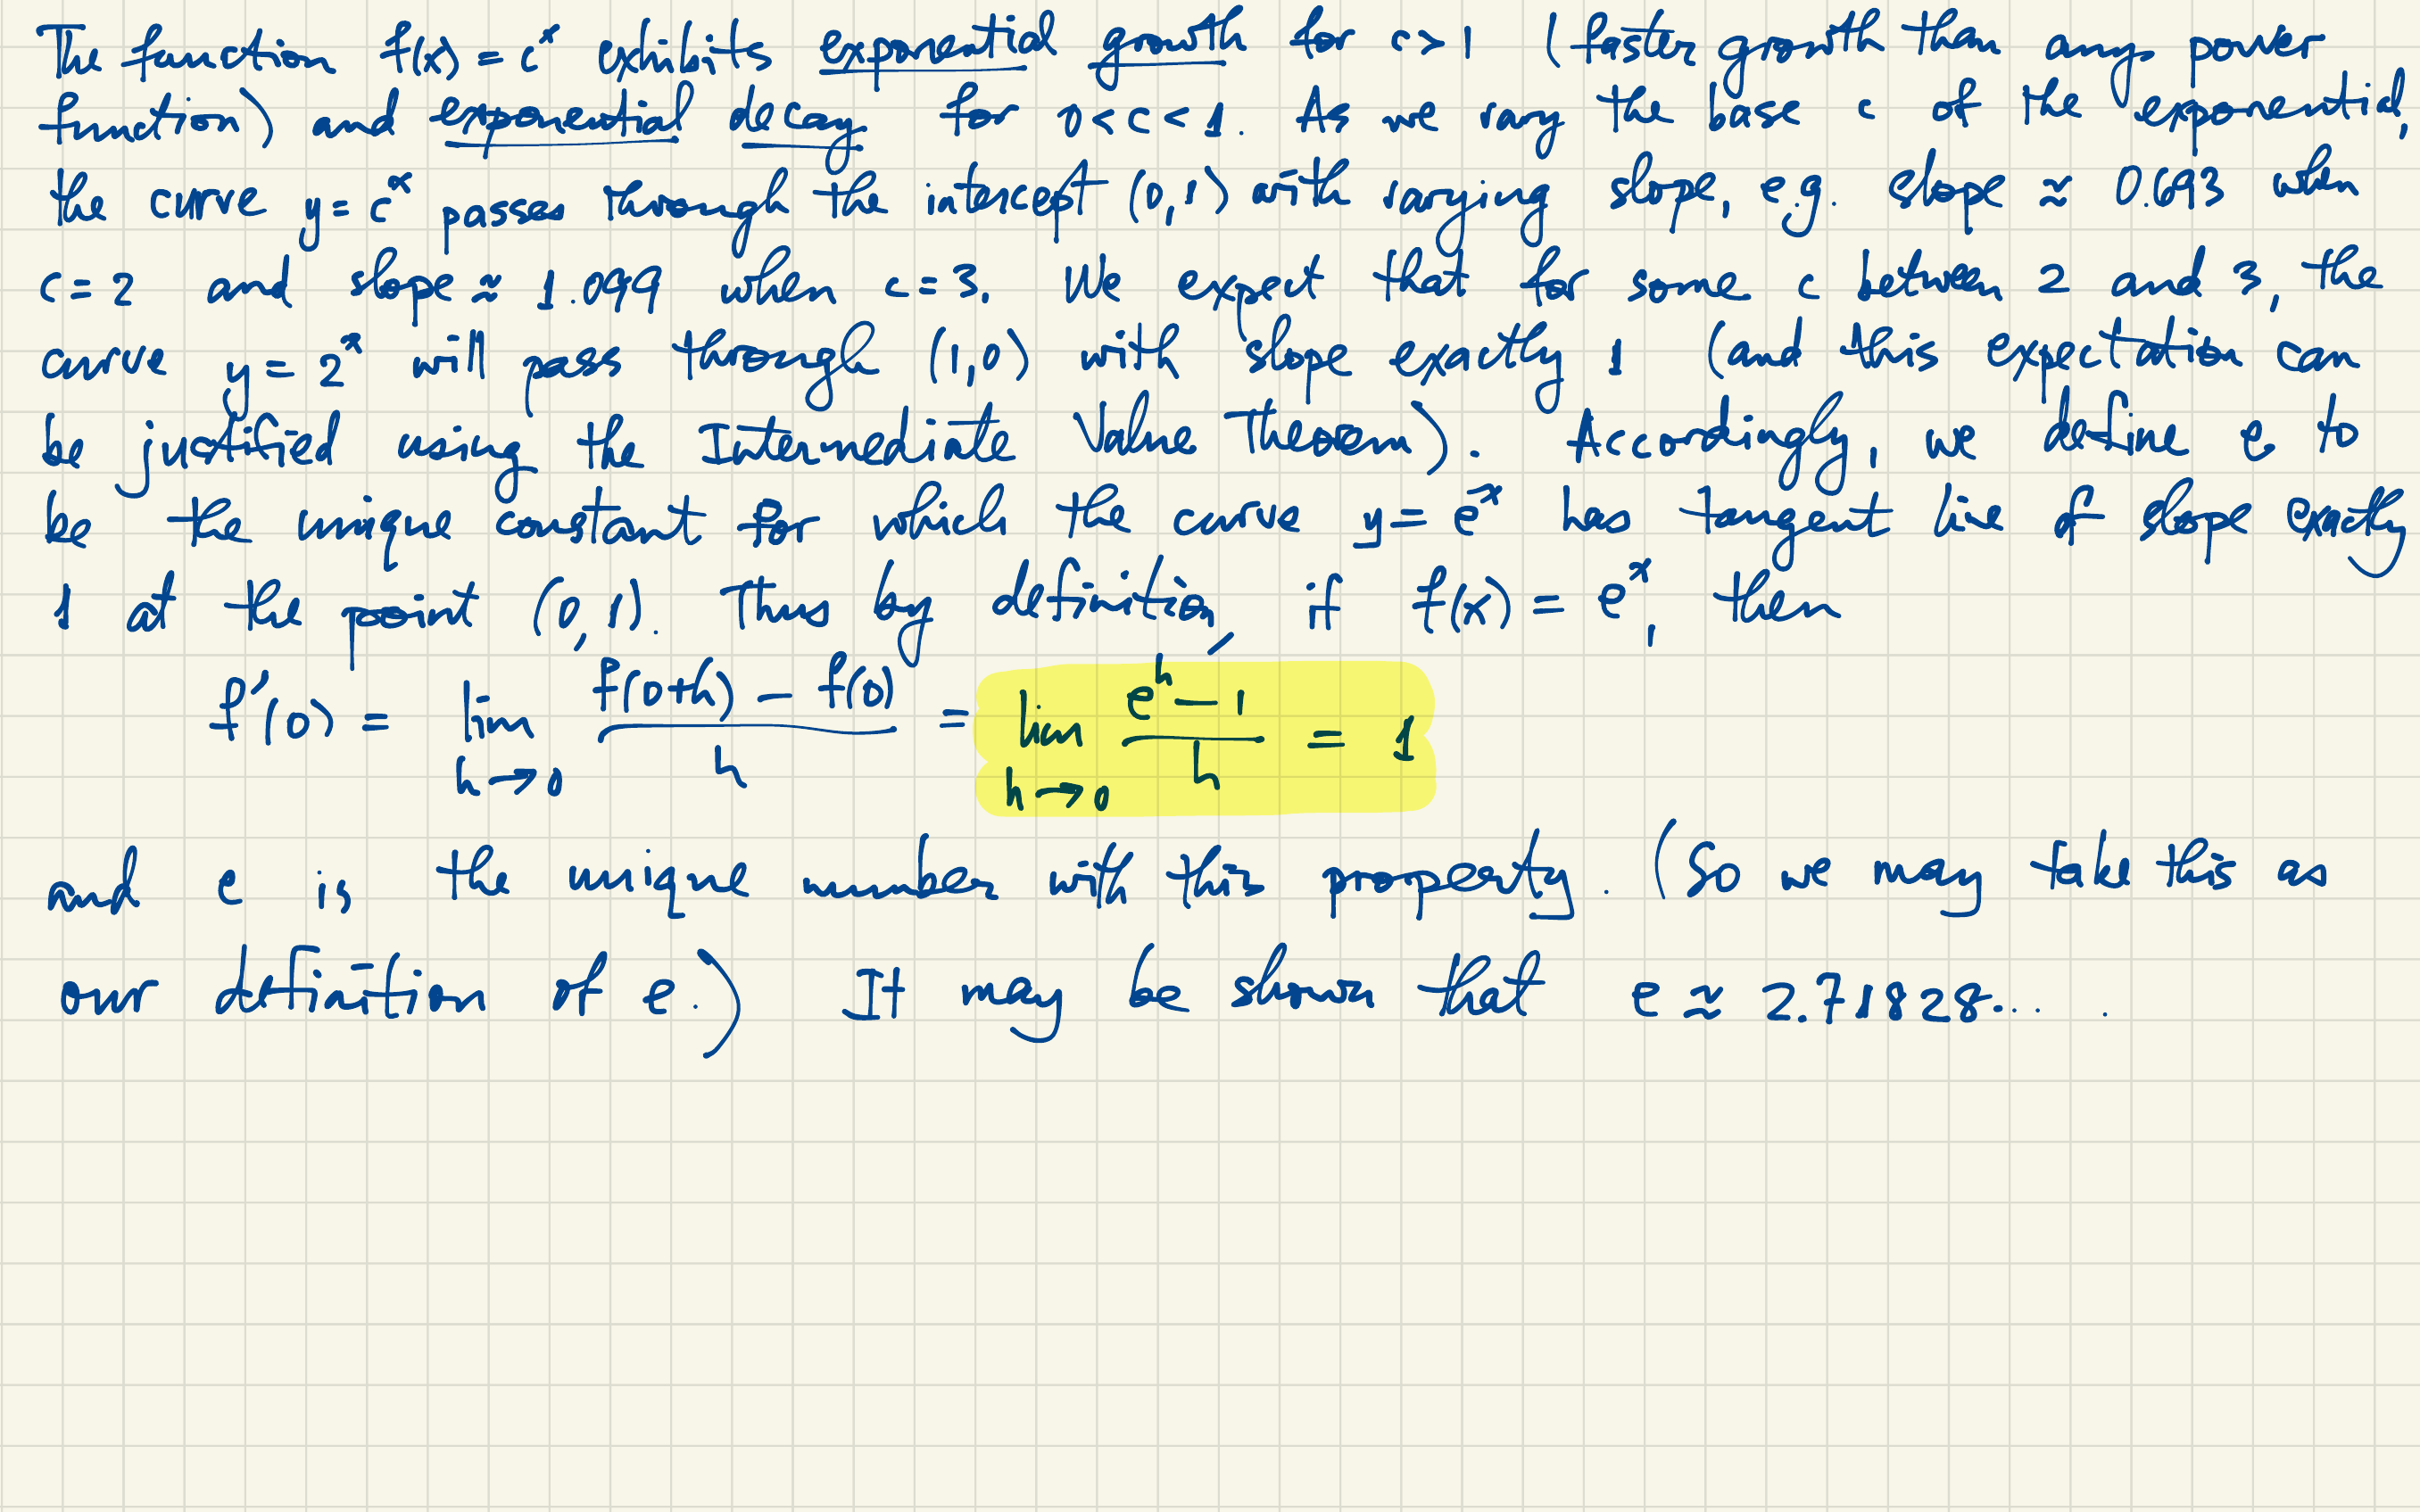 The function f(x) = cˣ exhibits exponential growth for c > 1 (faster growth than any power
function) and exponential decay for 0 < c < 1. As we vary the base c of the exponential,
the curve y = cˣ passes through the intercept (0,1) with varying slope, e.g. slope ≈ 0.693 when
c = 2 and slope ≈ 1.099 when c = 3. We expect that for some c between 2 and 3, the
curve y = 2ˣ will pass through (1,0) with slope exactly 1 (and this expectation can
be justified using the Intermediate Value Theorem). Accordingly, we define e to
be the unique constant for which the curve y = eˣ has tangent line of slope exactly
1 at the point (0,1). Thus by definition, if f(x) = eˣ, then
f'(0) = lim_{h→0} (f(0+h) − f(0))/h = lim_{h→0} (eʰ − 1)/h = 1
and e is the unique number with this property. (So we may take this as
our definition of e.) It may be shown that e ≈ 2.71828... .